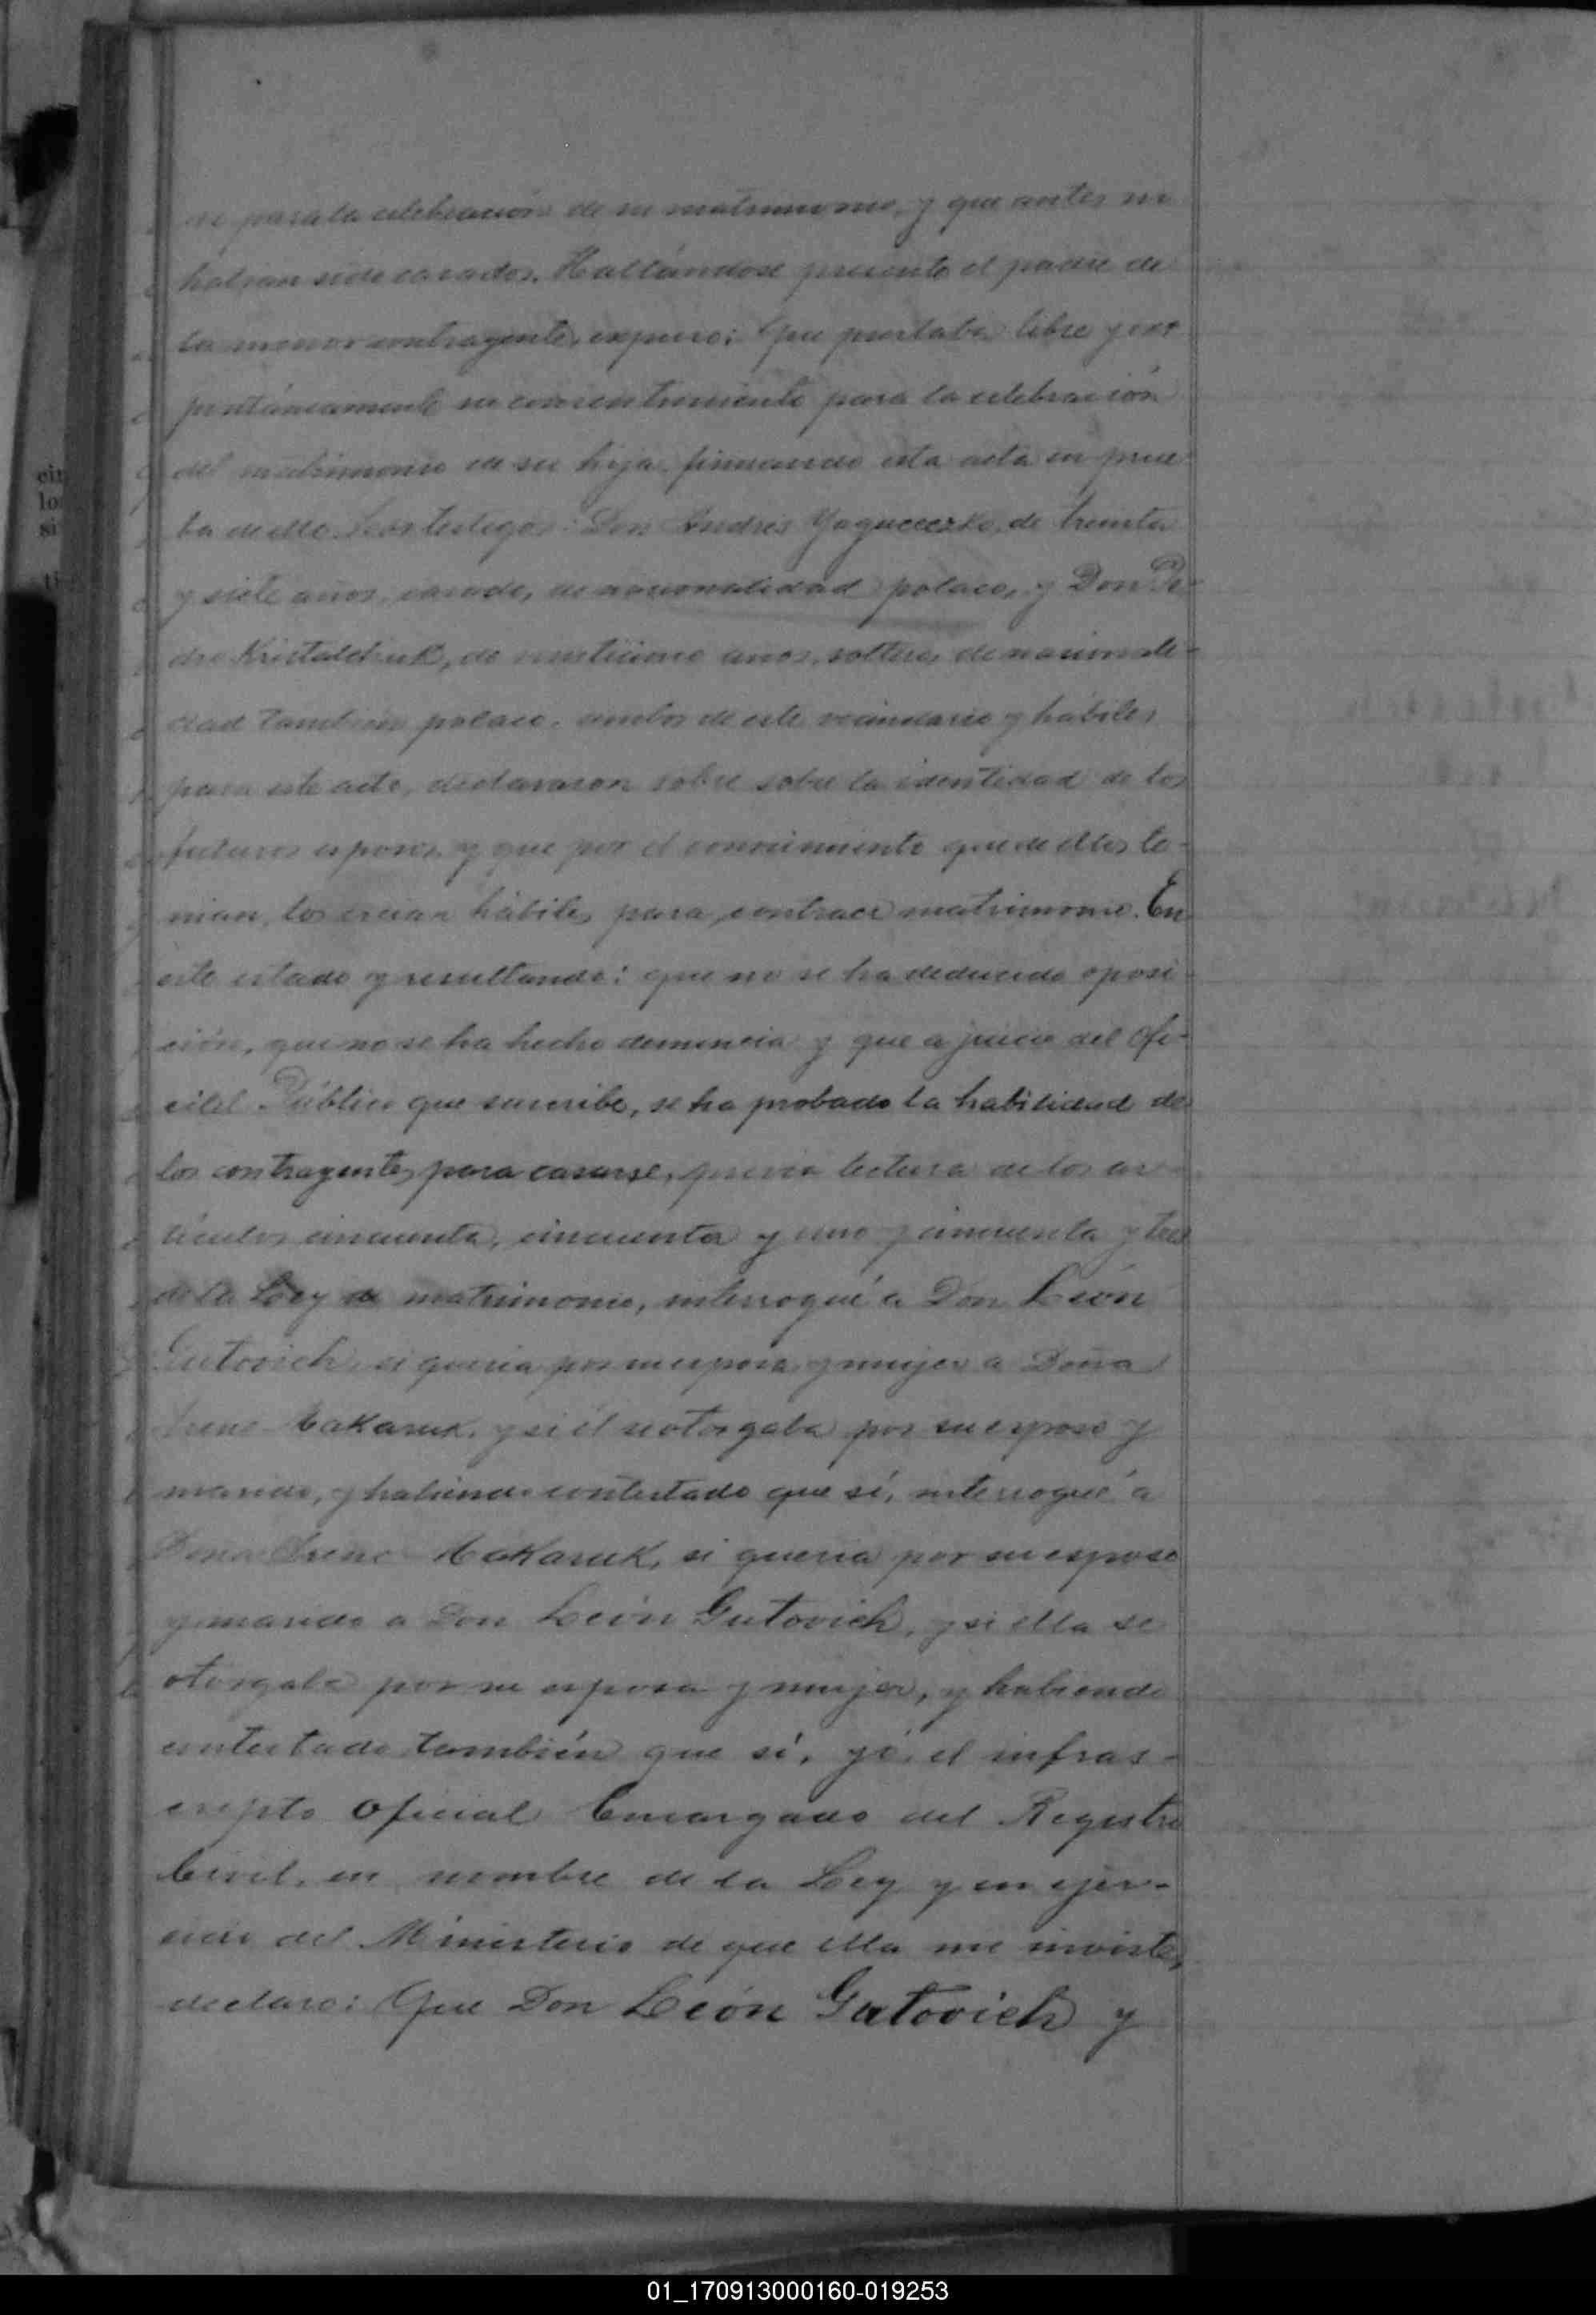 de para la celebración de su matrimonio, y que antes no
habian sido casados. Hallándose presente el padre de
la menor contrayente, expuso: Que prestaba libre y es-
pontáneamente su consentimiento para la celebración
del matrimonio de su hija firmando esta acta en prue-
ba de ello. Los testigos: Don Andrés de treinta
y siete años, casado, de nacionalidad polaco, y Don Pe-
dro Kristalchuk, de veinticinco años, soltero, de nacionali-
dad también polaco, ambos de este vecindario y hábiles
para este acto, declararon sobre sobre la identidad de los
futuros esposos, y que por el conocimiento que de ellos te-
nian, los creian hábiles para contraer matrimonio. En
este estado y resultando: que no se ha deducido oposi-
ción, que no se ha hecho denuncia y que a juicio del Ofi-
cial Público que suscribe, se ha probado la habilidad de
los contrayentes para casarse, previa lectura de los ar-
tículos cincuenta, cincuenta y uno y cincuenta y tres
de la Ley de matrimonio, interrogué a Don León
Gutovich si queria por su esposa y mujer a Doña
Irene Makaruk, y si él se otorgaba por su esposo y
marido, y habiendo contestado que sí, interrogué a
Doña Irene Makaruk, si queria por su esposo
y marido a Don León Gutovich, y si ella se
otorgaba por su esposa y mujer, y habiendo
contestado también que sí, yó, el infras-
cripto Oficial Encargado del Registro
Civil, en nombre de la Ley y en ejer-
cicio del Ministerio de que ella me inviste,
declaro: Que Don León Gutovich y
cin
lo
si
01_170913000160-019253